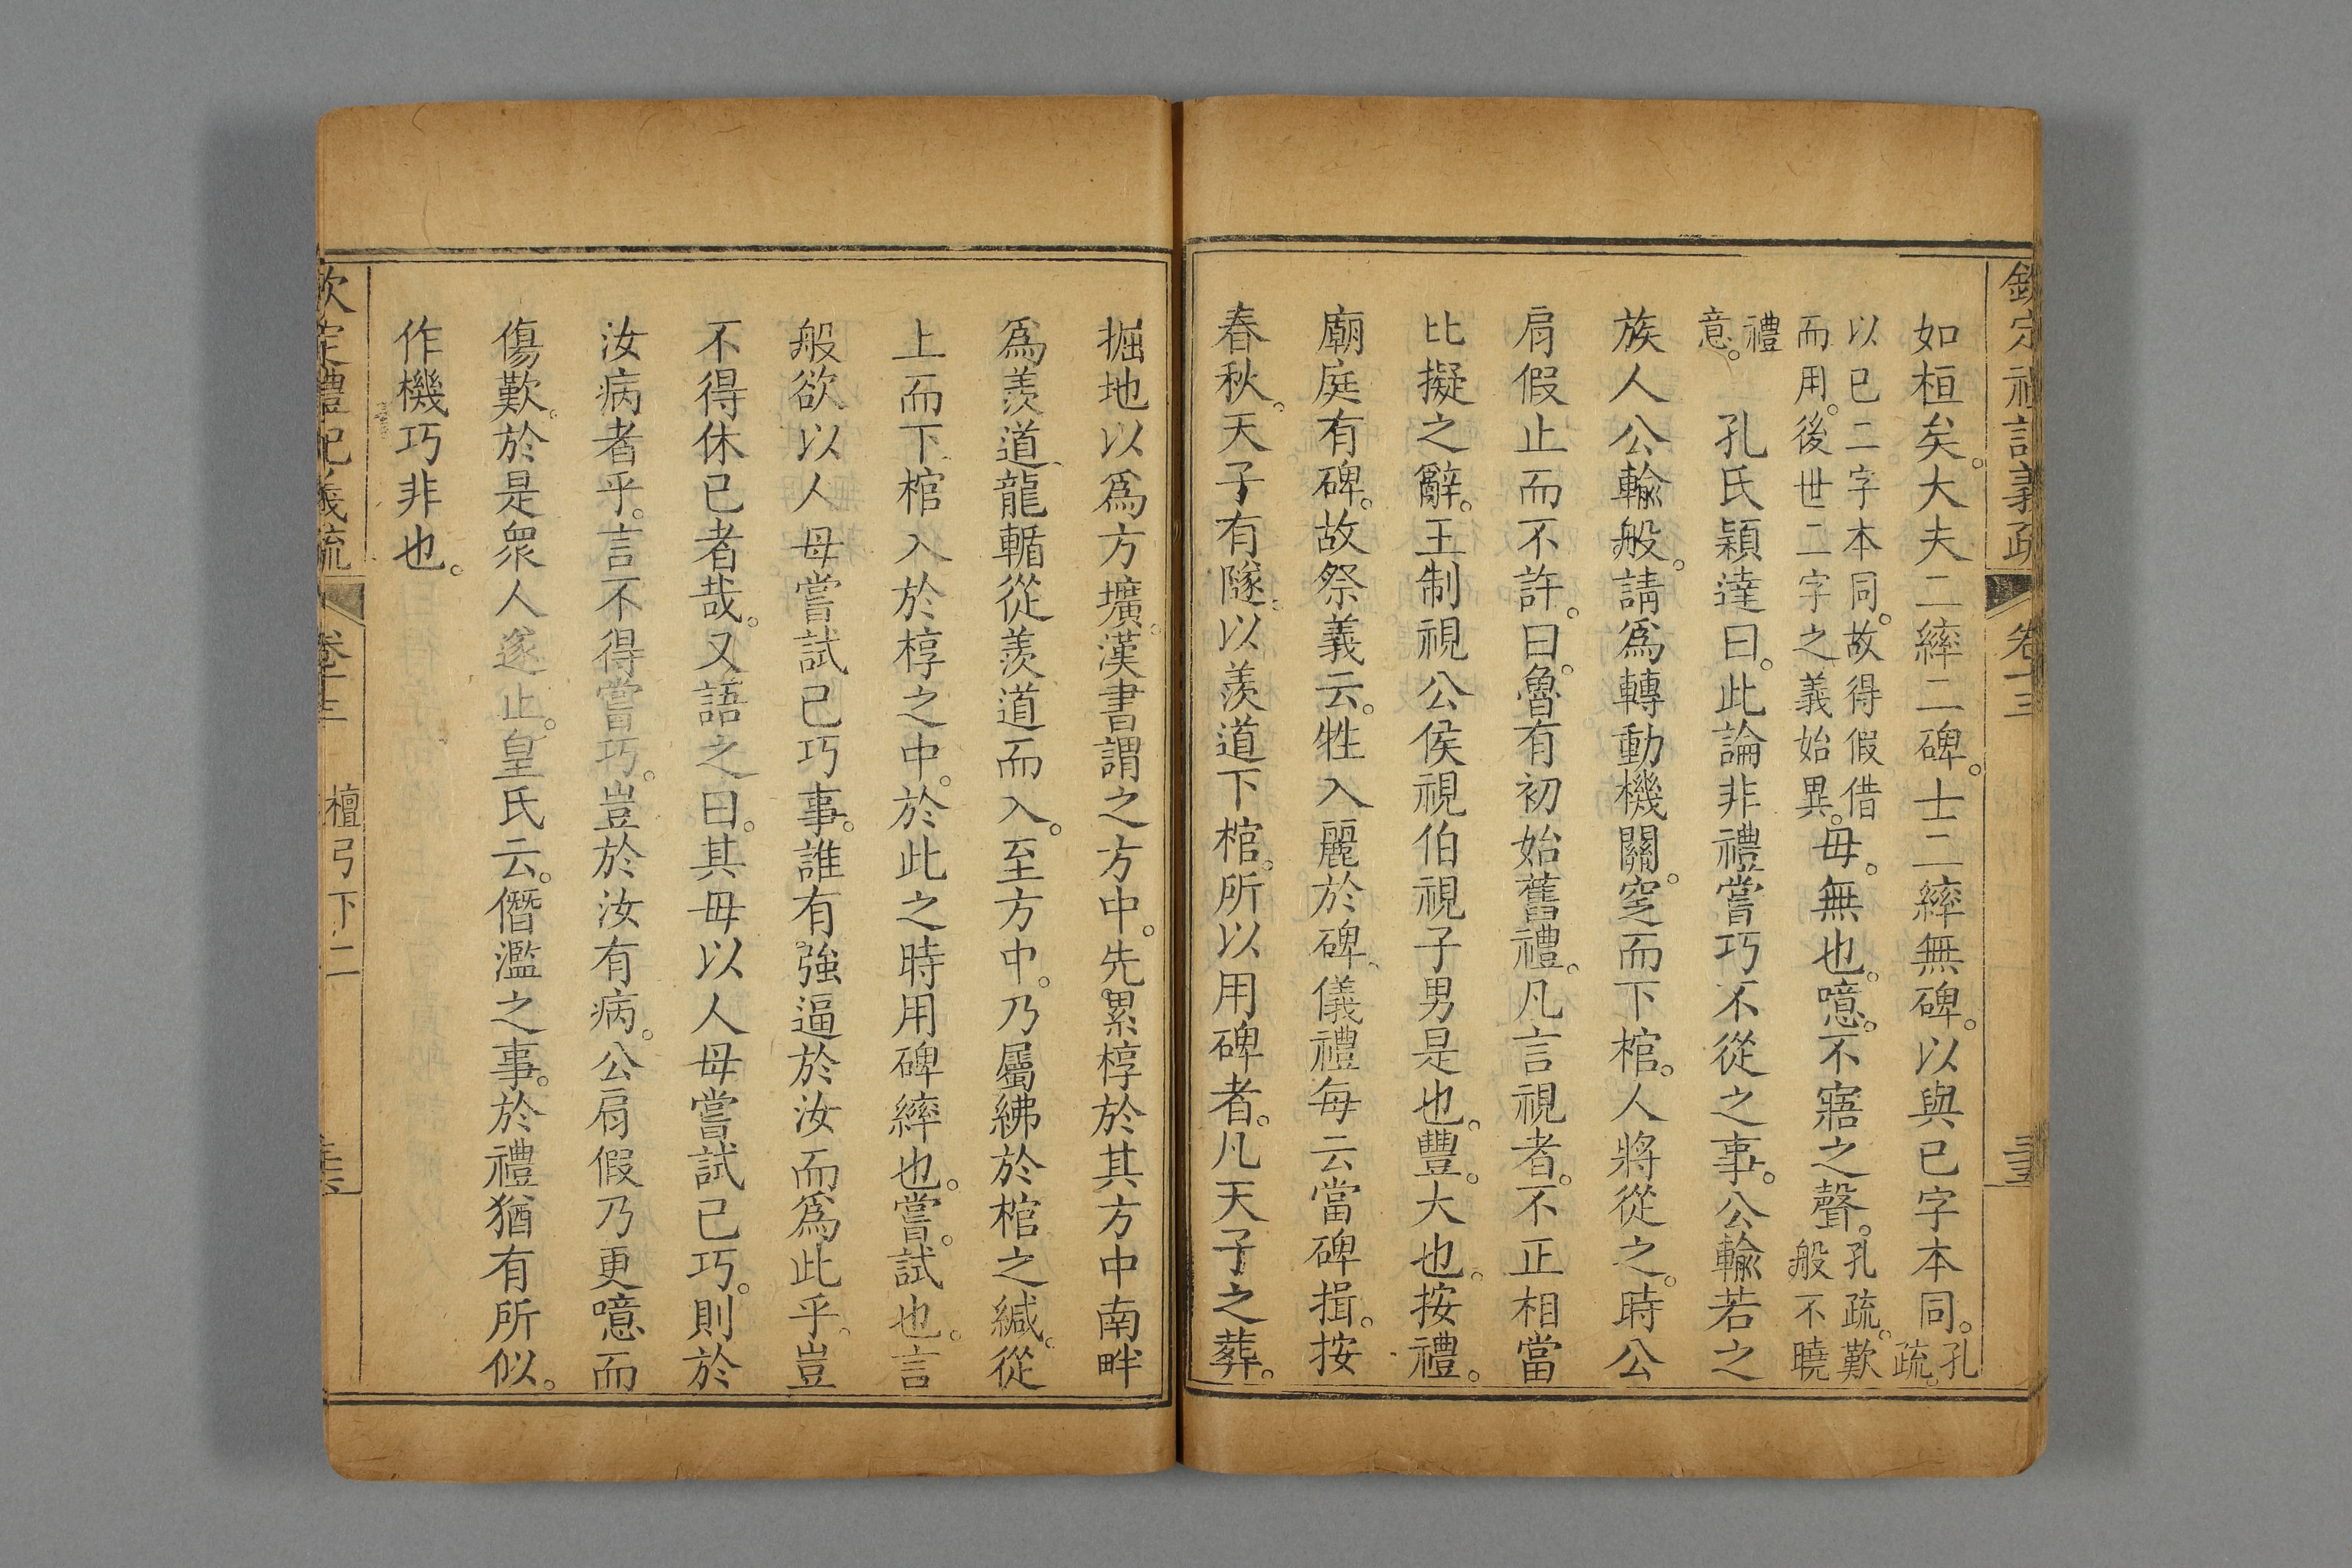 欽定禮記義疏 卷十三
如桓矣。大夫二繂二碑。士二繂無碑。以與已字本同。孔疏。
以已二字本同。故得假借
而用。後世二字之義始異。毋。無也。噫。不寤之聲。孔疏。歎
般不曉
禮
意。孔氏穎達曰。此論非禮嘗巧不從之事。公輸若之
族人公輸般。請爲轉動機關。窆而下棺。人將從之。時公
肩假止而不許。曰。魯有初始舊禮。凡言視者。不正相當
比擬之辭。王制視公侯視伯視子男是也。豐。大也。按禮。
廟庭有碑。故祭義云。牲入麗於碑、儀禮每云當碑揖。按
春秋。天子有隧。以羨道下棺。所以用碑者。凡天子之葬。
掘地以爲方壙。漢書謂之方中。先累椁於其方中南畔
爲羨道、龍輴從羨道而入。至方中。乃屬紼於棺之緘。從
上而下棺入於椁之中。於此之時用碑繂也。嘗。試也。言
般欲以人母嘗試己巧事。誰有強逼於汝而爲此乎。豈
不得休已者哉。又語之曰。其毋以人母嘗試己巧。則於
汝病者乎。言不得嘗巧。豈於汝有病。公肩假乃更噫而
傷歎。於是衆人遂止。皇氏云。僭濫之事。於禮猶有所似。
作機巧非也。
欽定禮記義疏 卷十三 檀弓下二